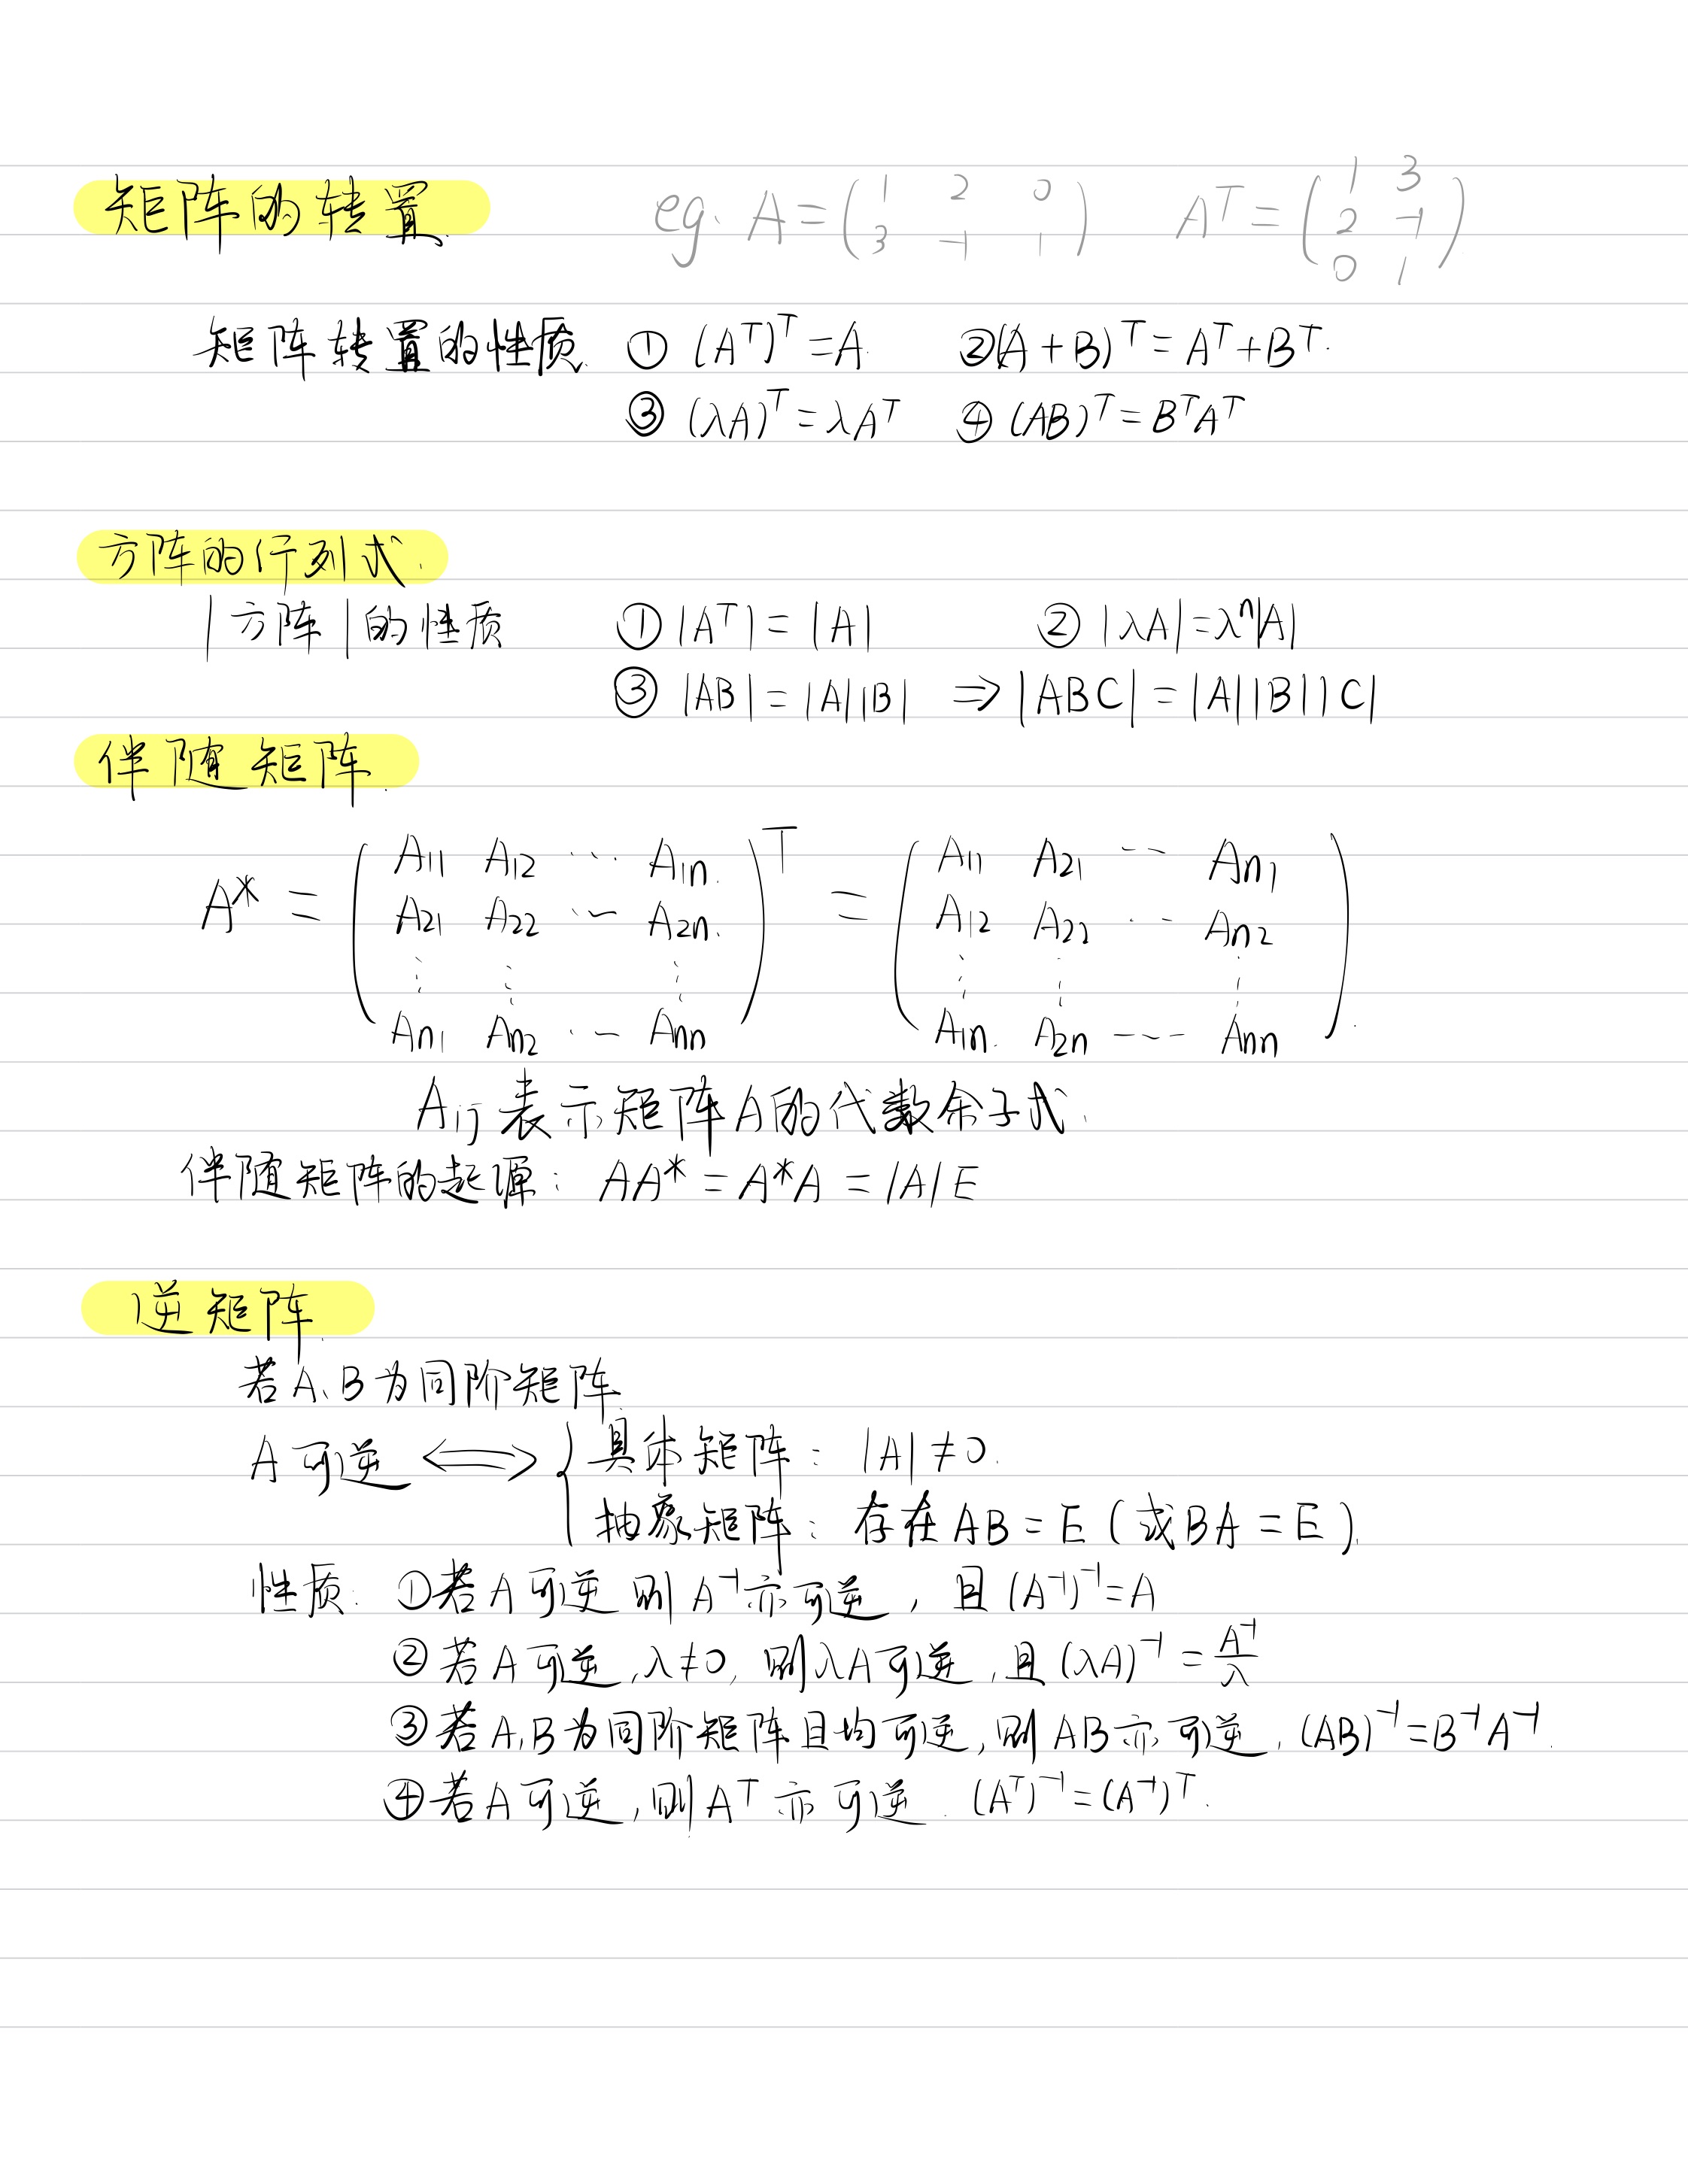 矩阵的转置. eg. A=(1 2 0 / 3 -1 1) Aᵀ=(1 3 / 2 -1 / 0 1).
矩阵转置的性质. ① (Aᵀ)ᵀ=A. ②(A+B)ᵀ=Aᵀ+Bᵀ.
③ (λA)ᵀ=λAᵀ ④ (AB)ᵀ=BᵀAᵀ
方阵的行列式.
|方阵|的性质 ① |Aᵀ|=|A| ② |λA|=λⁿ|A|
③ |AB|=|A||B| ⇒ |ABC|=|A||B||C|
伴随矩阵.
A* = (A₁₁ A₁₂ ⋯ A₁ₙ. / A₂₁ A₂₂ ⋯ A₂ₙ. / ⋮ ⋮ ⋮ / Aₙ₁ Aₙ₂ ⋯ Aₙₙ)ᵀ = (A₁₁ A₂₁ ⋯ Aₙ₁ / A₁₂ A₂₂ ⋯ Aₙ₂ / ⋮ ⋮ ⋮ / A₁ₙ. A₂ₙ ⋯ Aₙₙ).
Aij表示矩阵A的代数余子式.
伴随矩阵的起源: AA*=A*A=|A|E
逆矩阵.
若A、B为同阶矩阵.
A可逆 ⟺ { 具体矩阵: |A|≠0.
抽象矩阵: 存在AB=E(或BA=E).
性质: ①若A可逆则A⁻¹亦可逆, 且(A⁻¹)⁻¹=A
②若A可逆,λ≠0,则λA可逆,且(λA)⁻¹=A⁻¹/λ
③若A,B为同阶矩阵且均可逆,则AB亦可逆. (AB)⁻¹=B⁻¹A⁻¹.
④若A可逆,则Aᵀ亦可逆. (Aᵀ)⁻¹=(A⁻¹)ᵀ.